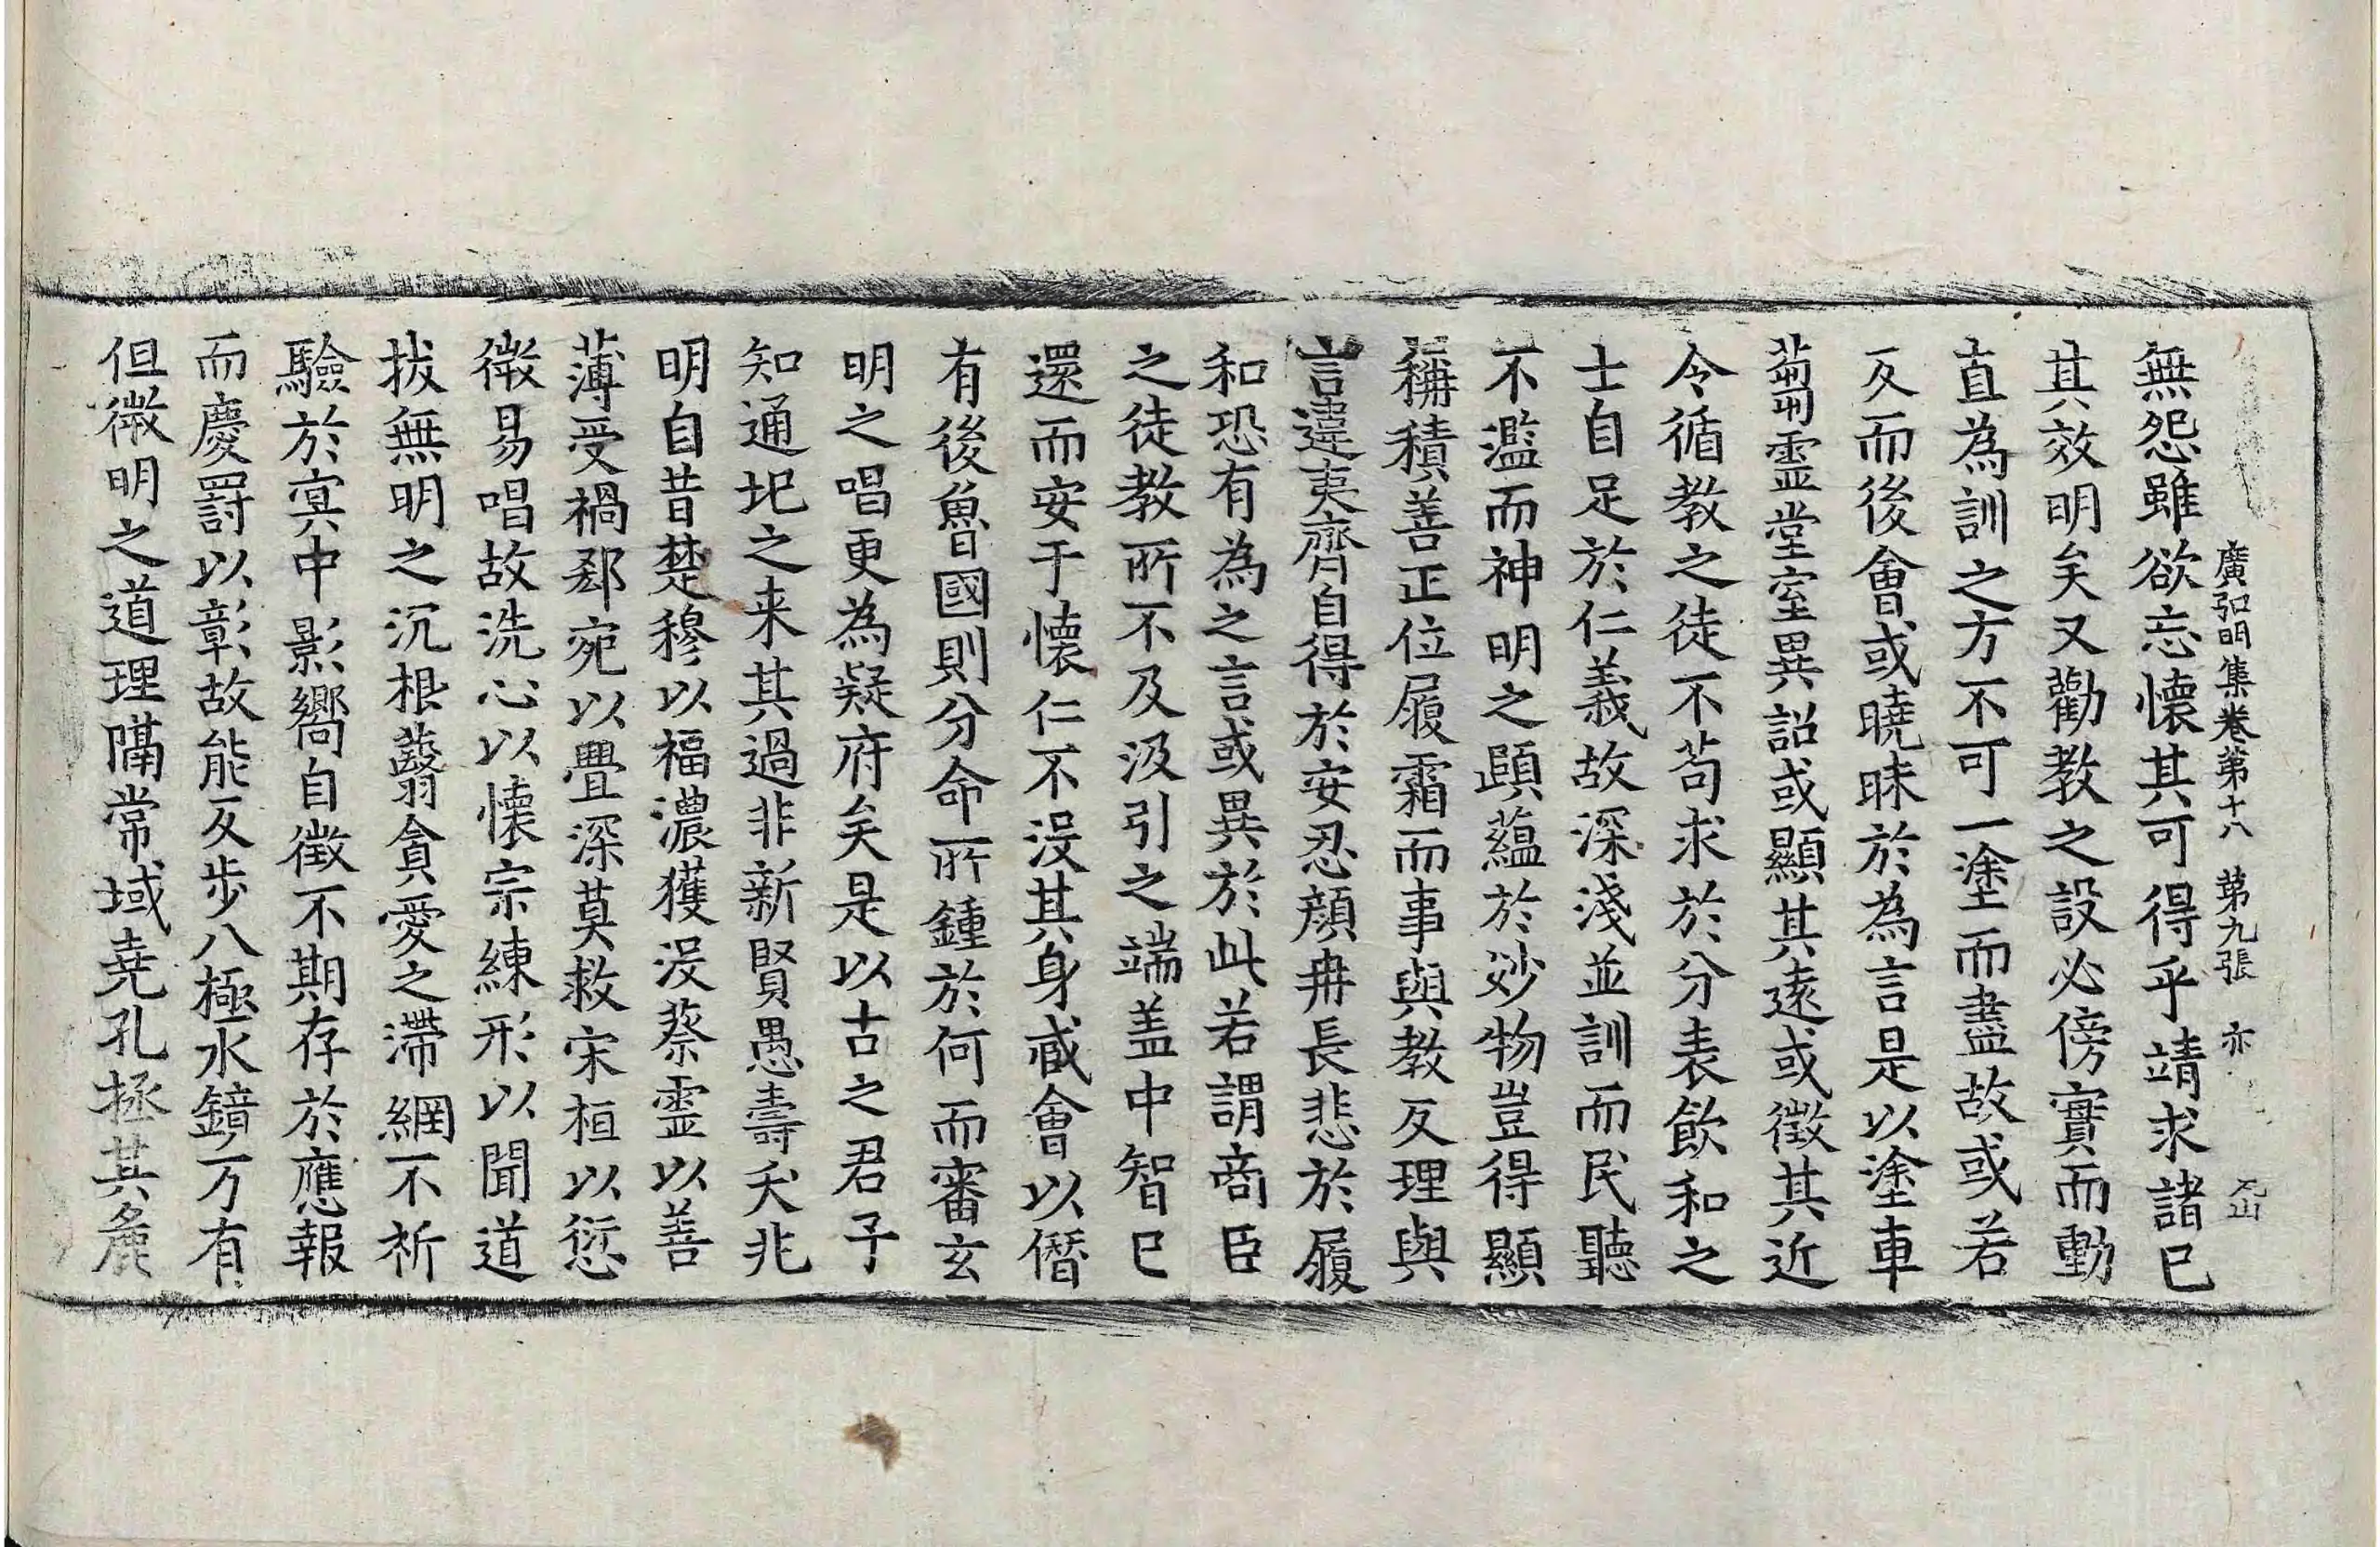 廣弘明集卷第十八　第九張　亦
無怨雖欲忘懷其可得乎請求諸已
其效明矣又勸教之設必傍實而動
直為訓之方不可一塗而盡故或若
反而後會或曉昧於為言是以塗車
蒭靈堂室異詔或顯其遠或徵其近
令循教之徒不苟求於分表飲和之
士自足於仁義故深淺並訓而民聽
不濫而神明之賾蘊於妙物豈得顯
稱積善正位履霜而事與教反理與
言違夷齊自得於安忍顔冉長悲於履
和恐有為之言或異於此若謂商臣
之徒教所不及汲引之端盖中智已
還而安于懷仁不没其身臧會以僭
有後魯國則分命所鍾於何而審玄
明之唱更為疑府矣是以古之君子
知通圮之来其過非新賢愚壽夭兆
明自昔楚穆以福濃獲没蔡霊以善
薄受禍郄宛以舋深莫救宋桓以愆
微易唱故洗心以懷宗練形以聞道
拔無明之沉根蘙貪愛之滯網不祈
驗於冥中影嚮自徵不期存於應報
而慶罰以彰故能反步八極水鏡万有
但微明之道理隔常域堯孔拯其麁